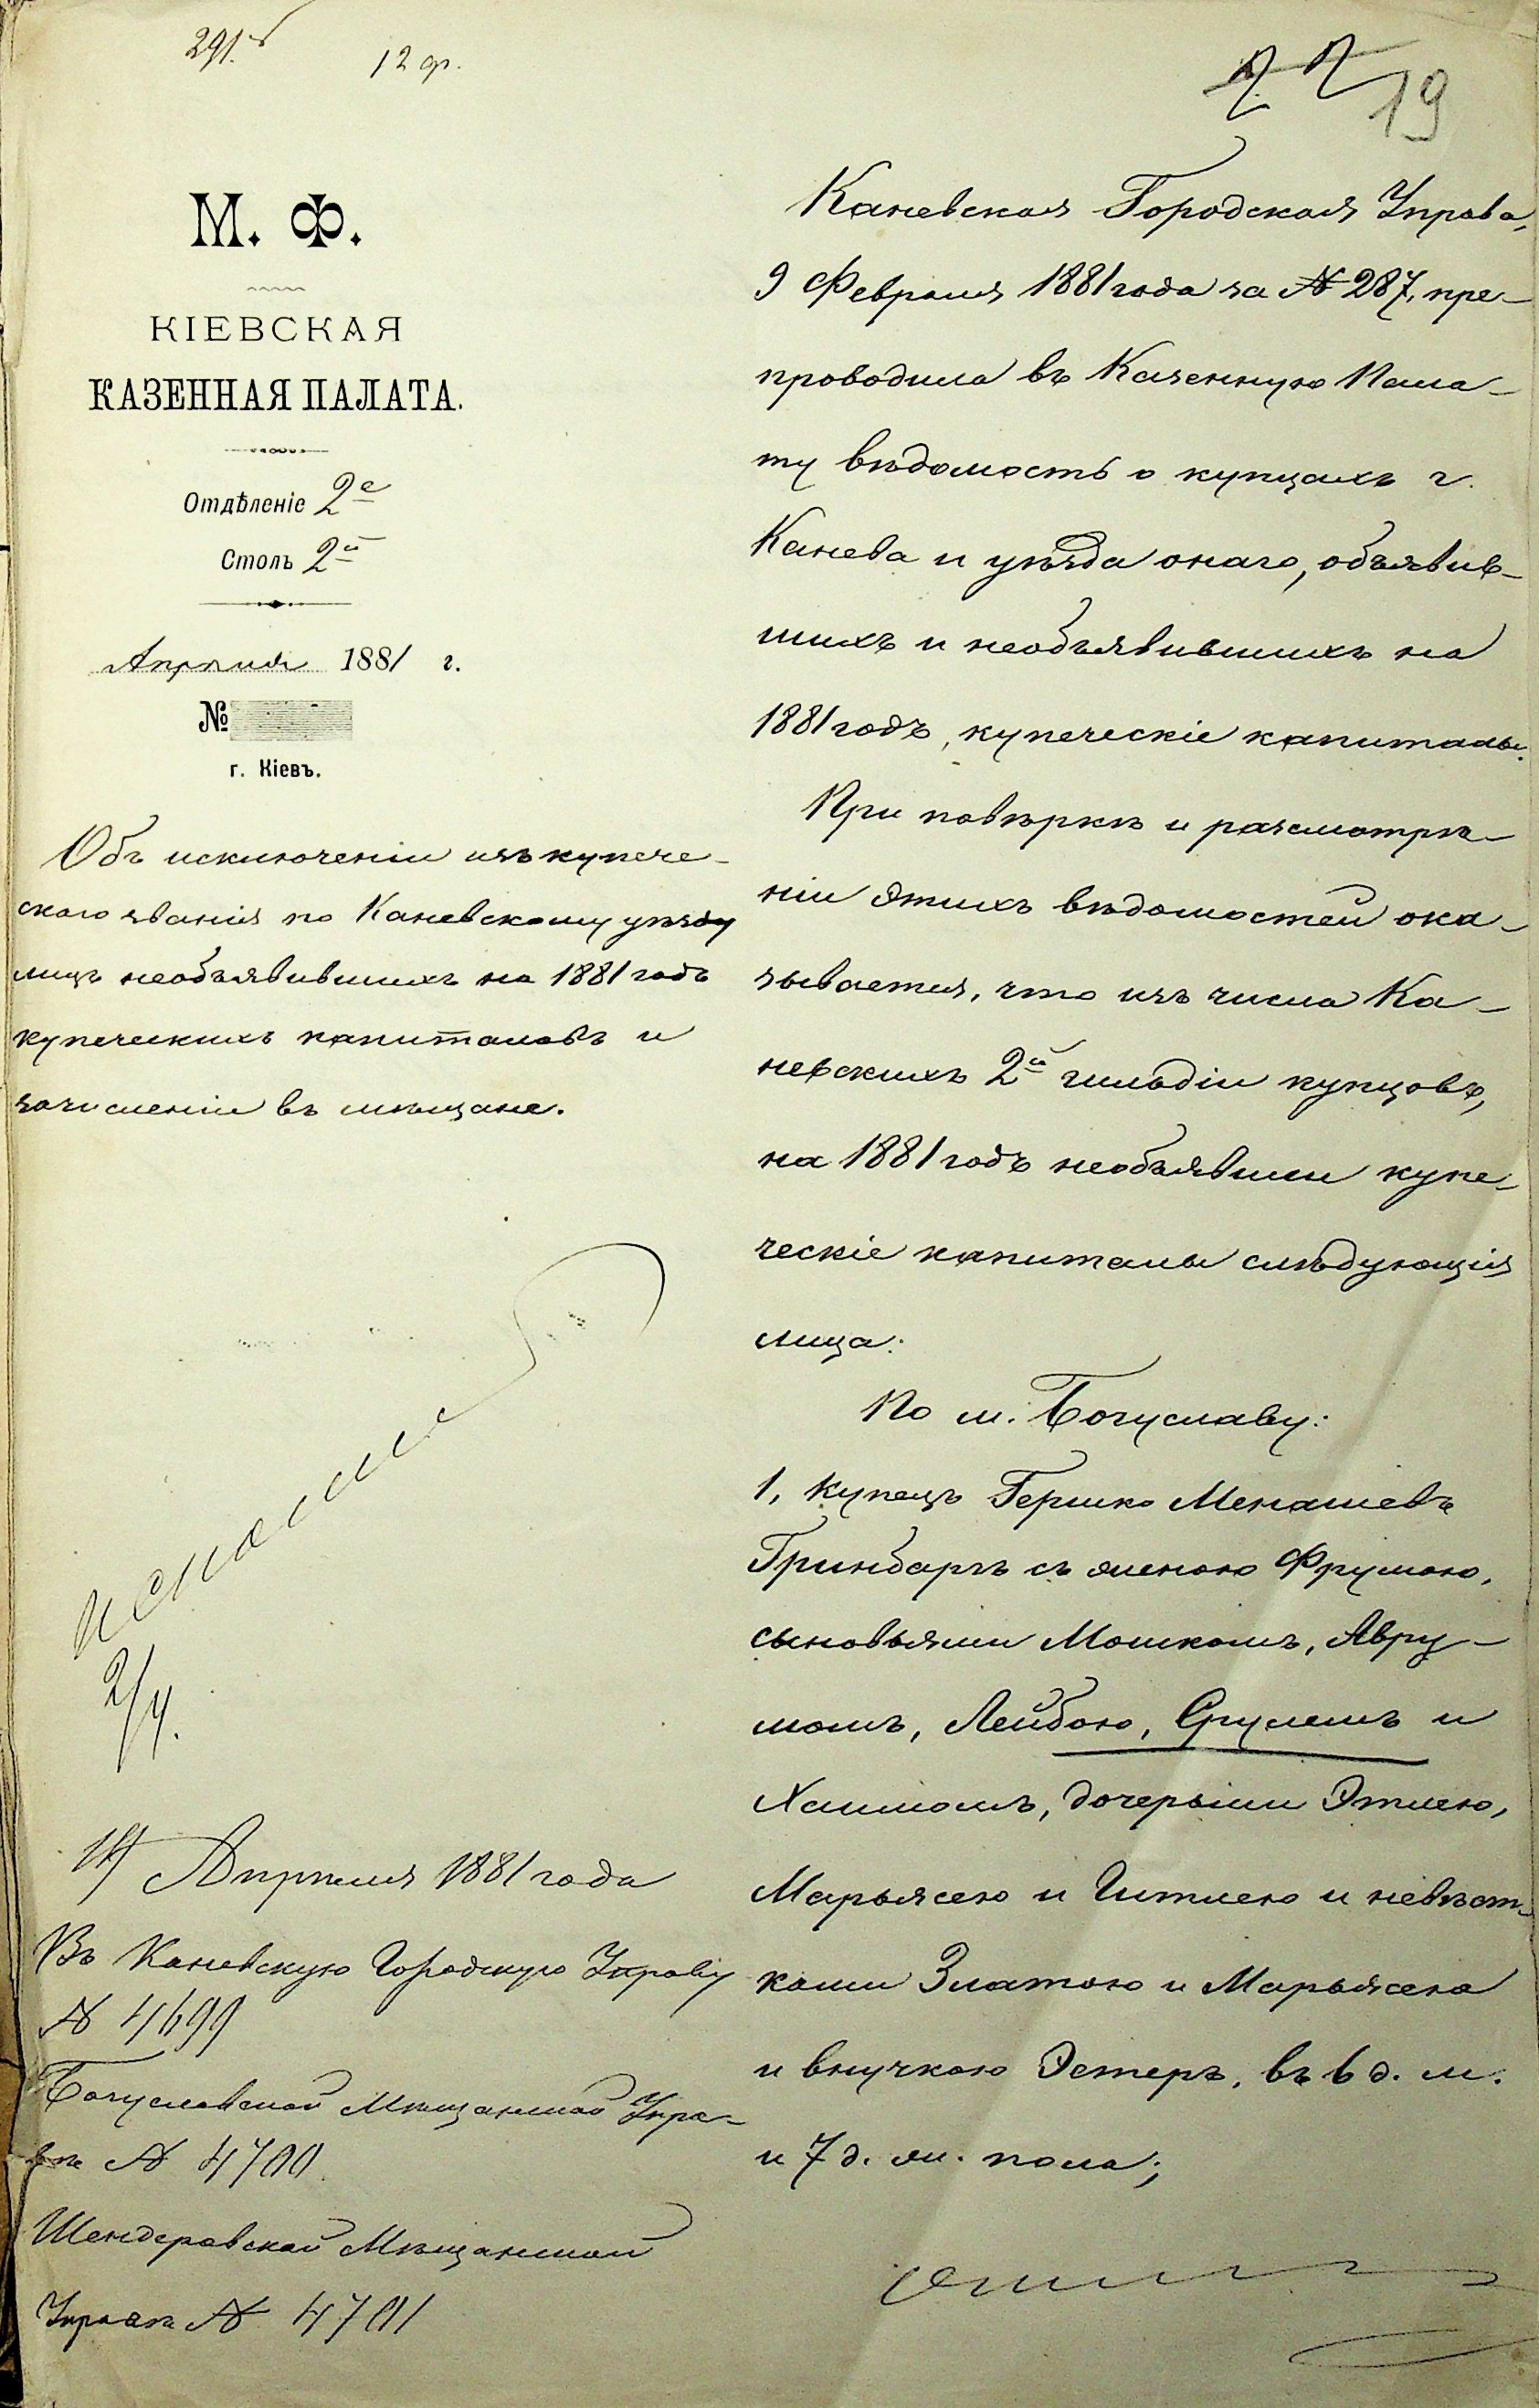 291.
12 ф.
19
М. Ф.
КІЕВСКАЯ
КАЗЕННАЯ ПАЛАТА.
Отдѣленіе 2е
Столъ 2й
Апрѣля 1881 г.
№
г. Кіевъ.
Объ исключеніи изъ купече-
скаго званія по Каневскому уѣзду
лицъ необъявившихъ на 1881 годъ
купеческихъ капиталовъ и
зачисленіи въ мѣщане.
2/4.
14 Апрѣля 1881 года
Въ Каневскую Городскую Управу
№ 4699
Богуславской Мѣщанской Упра-
вѣ № 4700
Шендеровской Мѣщанской
Управѣ № 4701
Каневская Городская Управа,
9 Февраля 1881 года за № 287, пре-
проводила въ Казенную Пала-
ту вѣдомость о купцахъ г.
Канева и уѣзда онаго, объявив-
шихъ и необъявившихъ на
1881 годъ, купеческіе капиталы.
При повѣркѣ и разсмотрѣ-
ніи этихъ вѣдомостей ока-
зывается, что изъ числа Ка-
невскихъ 2й гильдіи купцовъ,
на 1881 годъ необъявили купе-
ческіе капиталы слѣдующія
лица:
По м. Богуславу:
1, купецъ Гершко Менашевъ
Гринбаргъ съ женою Фрумою,
сыновьями Мошкомъ, Авру-
момъ, Лейбою, Срулемъ и
Хаимомъ, дочерьми Этлею,
Марьясею и Гитлею и невѣст-
ками Златою и Марьясею
и внучкою Эстеръ, въ 6 д. м.
и 7 д. ж. пола;